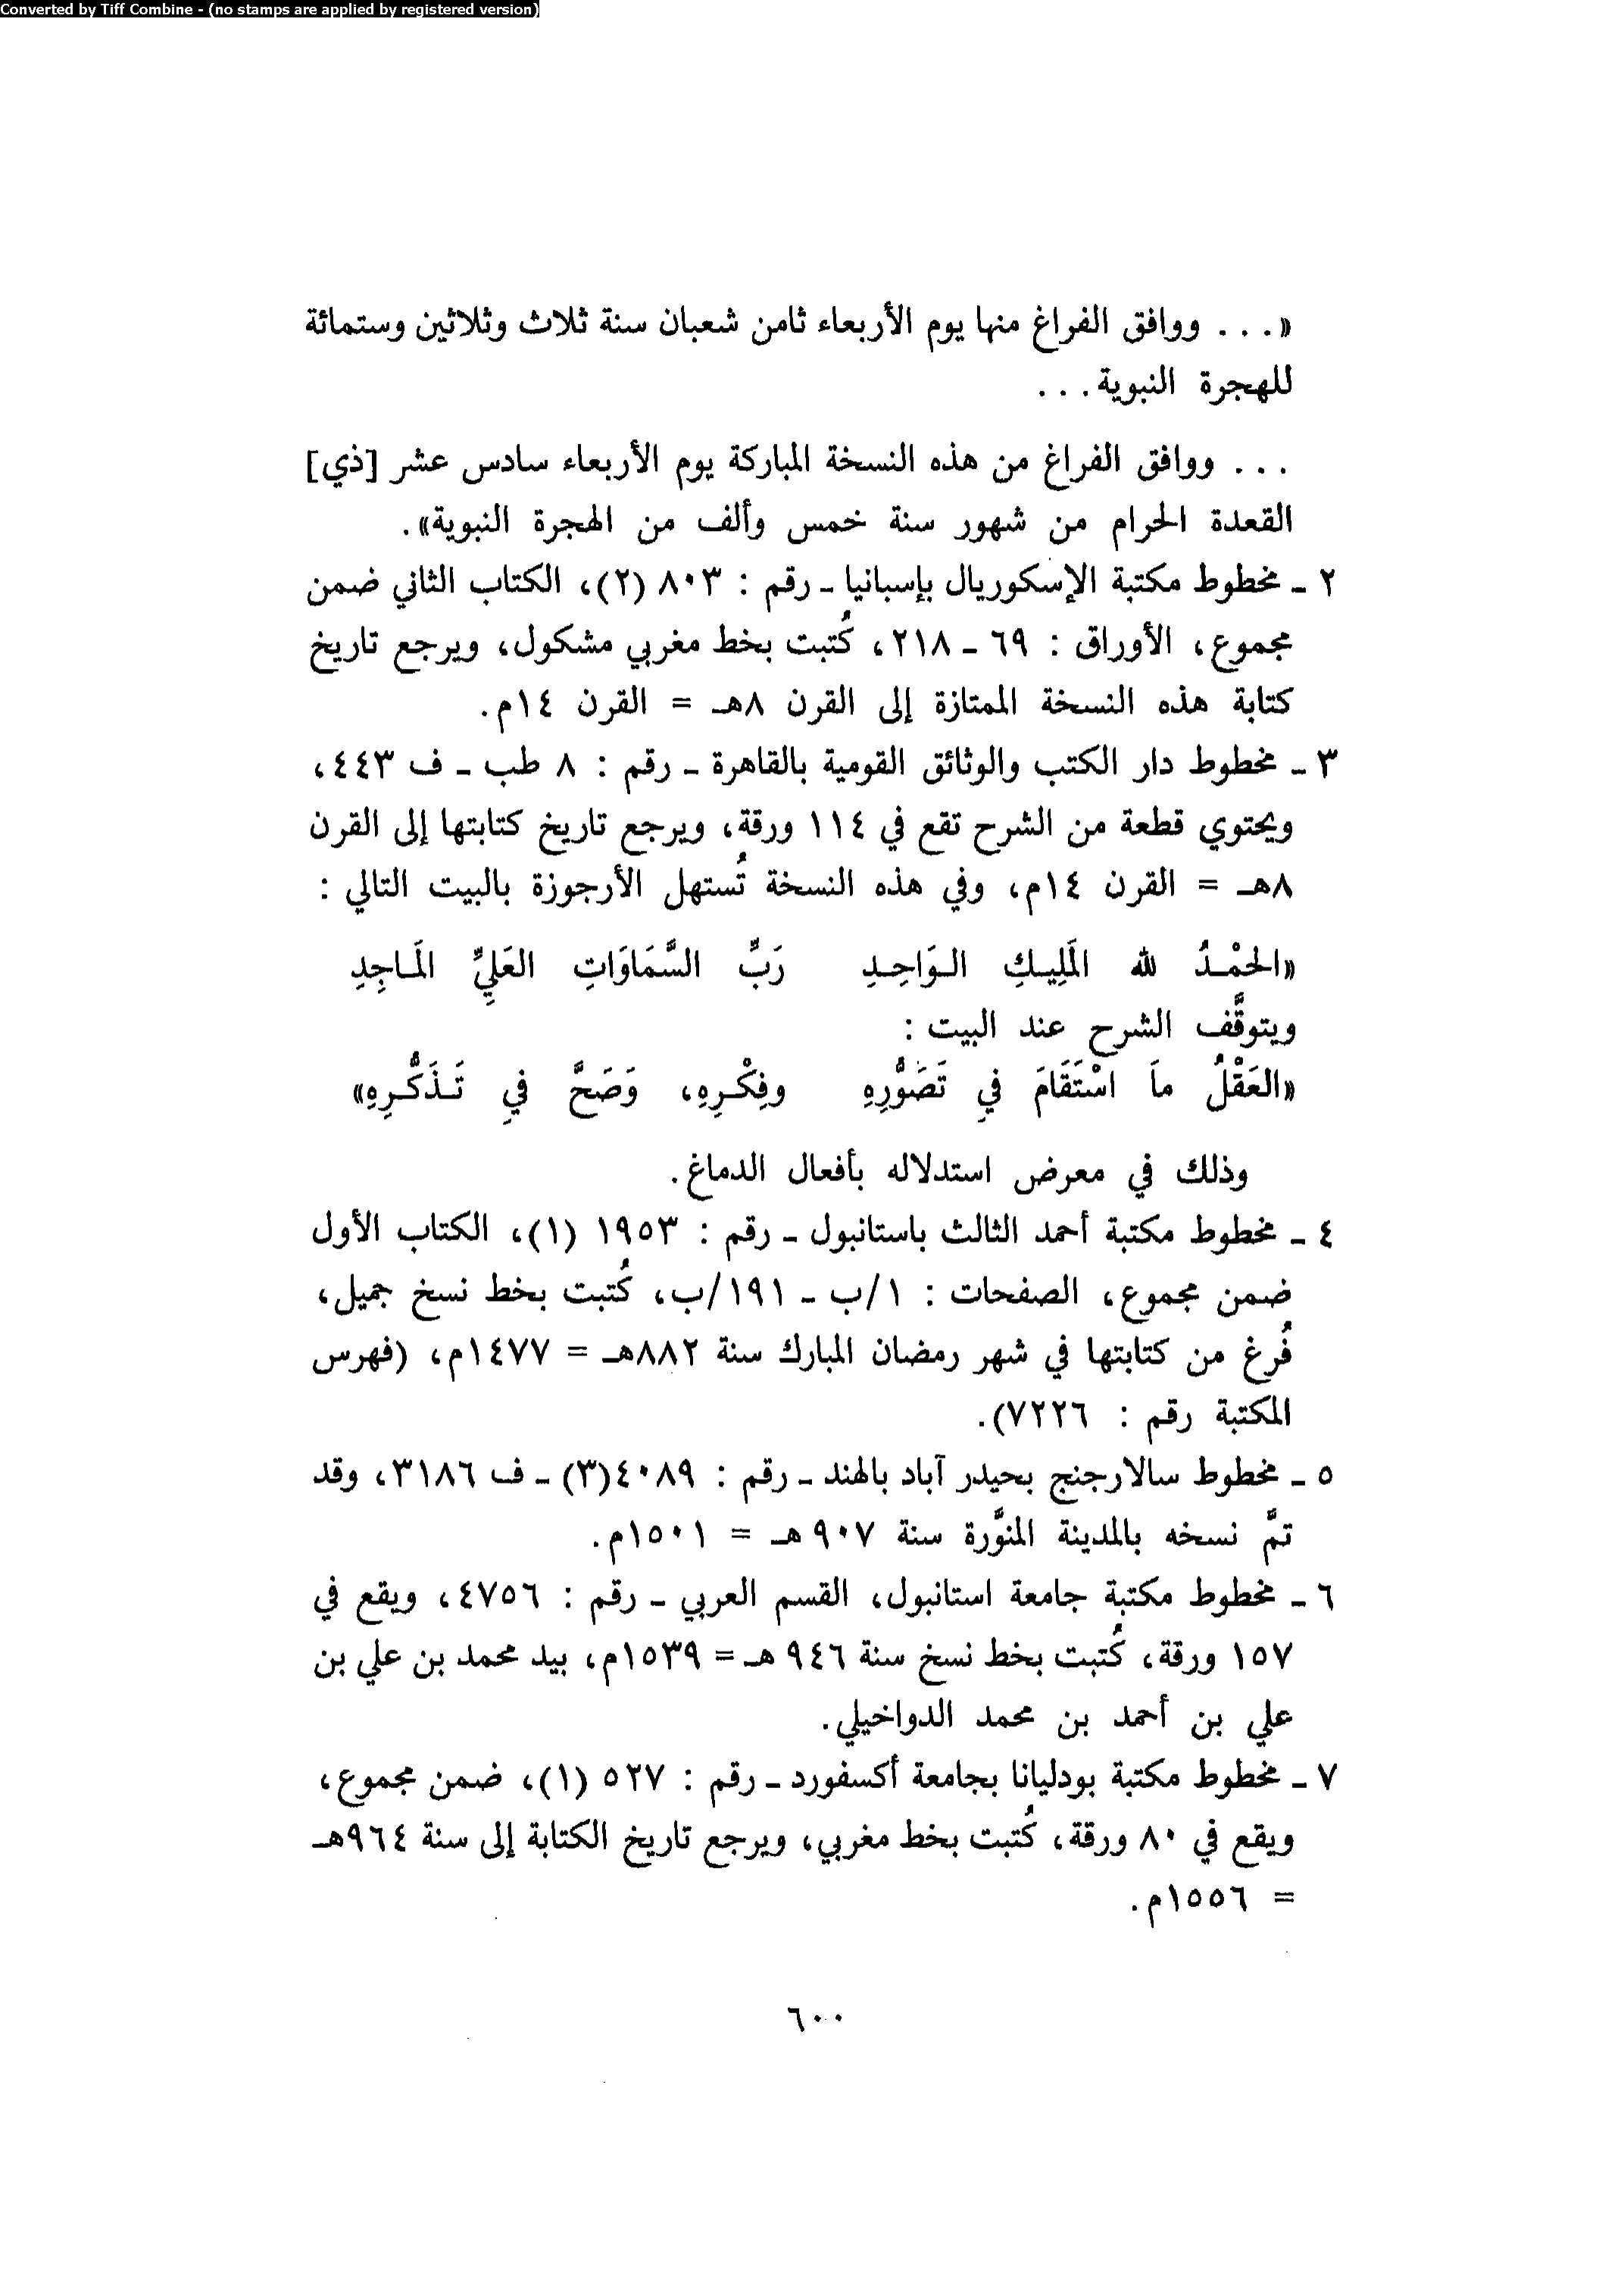 Converted by Tiff Combine - (no stamps are applied by registered version)
«... ووافق الفراغ منها يوم الأربعاء ثامن شعبان سنة ثلاث وثلاثين وستمائة
للهجرة النبوية...
... ووافق الفراغ من هذه النسخة المباركة يوم الأربعاء سادس عشر [ذي]
القعدة الحرام من شهور سنة خمس وألف من الهجرة النبوية».
٢ - مخطوط مكتبة الإسكوريال بإسبانيا - رقم : ٨٠٣ (٢)، الكتاب الثاني ضمن
مجموع، الأوراق : ٦٩ - ٢١٨، كُتبت بخط مغربي مشكول، ويرجع تاريخ
كتابة هذه النسخة الممتازة إلى القرن ٨هـ = القرن ١٤م.
٣ - مخطوط دار الكتب والوثائق القومية بالقاهرة - رقم : ٨ طب - ف ٤٤٣،
ويحتوي قطعة من الشرح تقع في ١١٤ ورقة، ويرجع تاريخ كتابتها إلى القرن
٨هـ = القرن ١٤م، وفي هذه النسخة تُستهل الأرجوزة بالبيت التالي :
«الحَمْدُ لله المَلِيكِ الوَاحِدِ رَبِّ السَّمَاوَاتِ العَلِيِّ المَاجِدِ
ويتوقَّف الشرح عند البيت :
«العَقْلُ مَا اسْتَقَامَ فيِ تَصَوُّرِهِ وفِكْرِهِ، وَصَحَّ فيِ تَذَكُّرِهِ»
وذلك في معرض استدلاله بأفعال الدماغ.
٤ - مخطوط مكتبة أحمد الثالث باستانبول - رقم : ١٩٥٣ (١)، الكتاب الأول
ضمن مجموع، الصفحات : ١/ب - ١٩١/ب، كُتبت بخط نسخ جميل،
فُرغ من كتابتها في شهر رمضان المبارك سنة ٨٨٢هـ = ١٤٧٧م، (فهرس
المكتبة رقم : ٧٢٢٦).
٥ - مخطوط سالارجنج بحيدر آباد بالهند - رقم : ٤٠٨٩(٣) - ف ٣١٨٦، وقد
تمَّ نسخه بالمدينة المنوَّرة سنة ٩٠٧ هـ = ١٥٠١م.
٦ - مخطوط مكتبة جامعة استانبول، القسم العربي - رقم : ٤٧٥٦، ويقع في
١٥٧ ورقة، كُتبت بخط نسخ سنة ٩٤٦ هـ = ١٥٣٩م، بيد محمد بن علي بن
علي بن أحمد بن محمد الدواخيلي.
٧ - مخطوط مكتبة بودليانا بجامعة أكسفورد - رقم : ٥٢٧ (١)، ضمن مجموع،
ويقع في ٨٠ ورقة، كُتبت بخط مغربي، ويرجع تاريخ الكتابة إلى سنة ٩٦٤هـ
= ١٥٥٦م.
٦٠٠